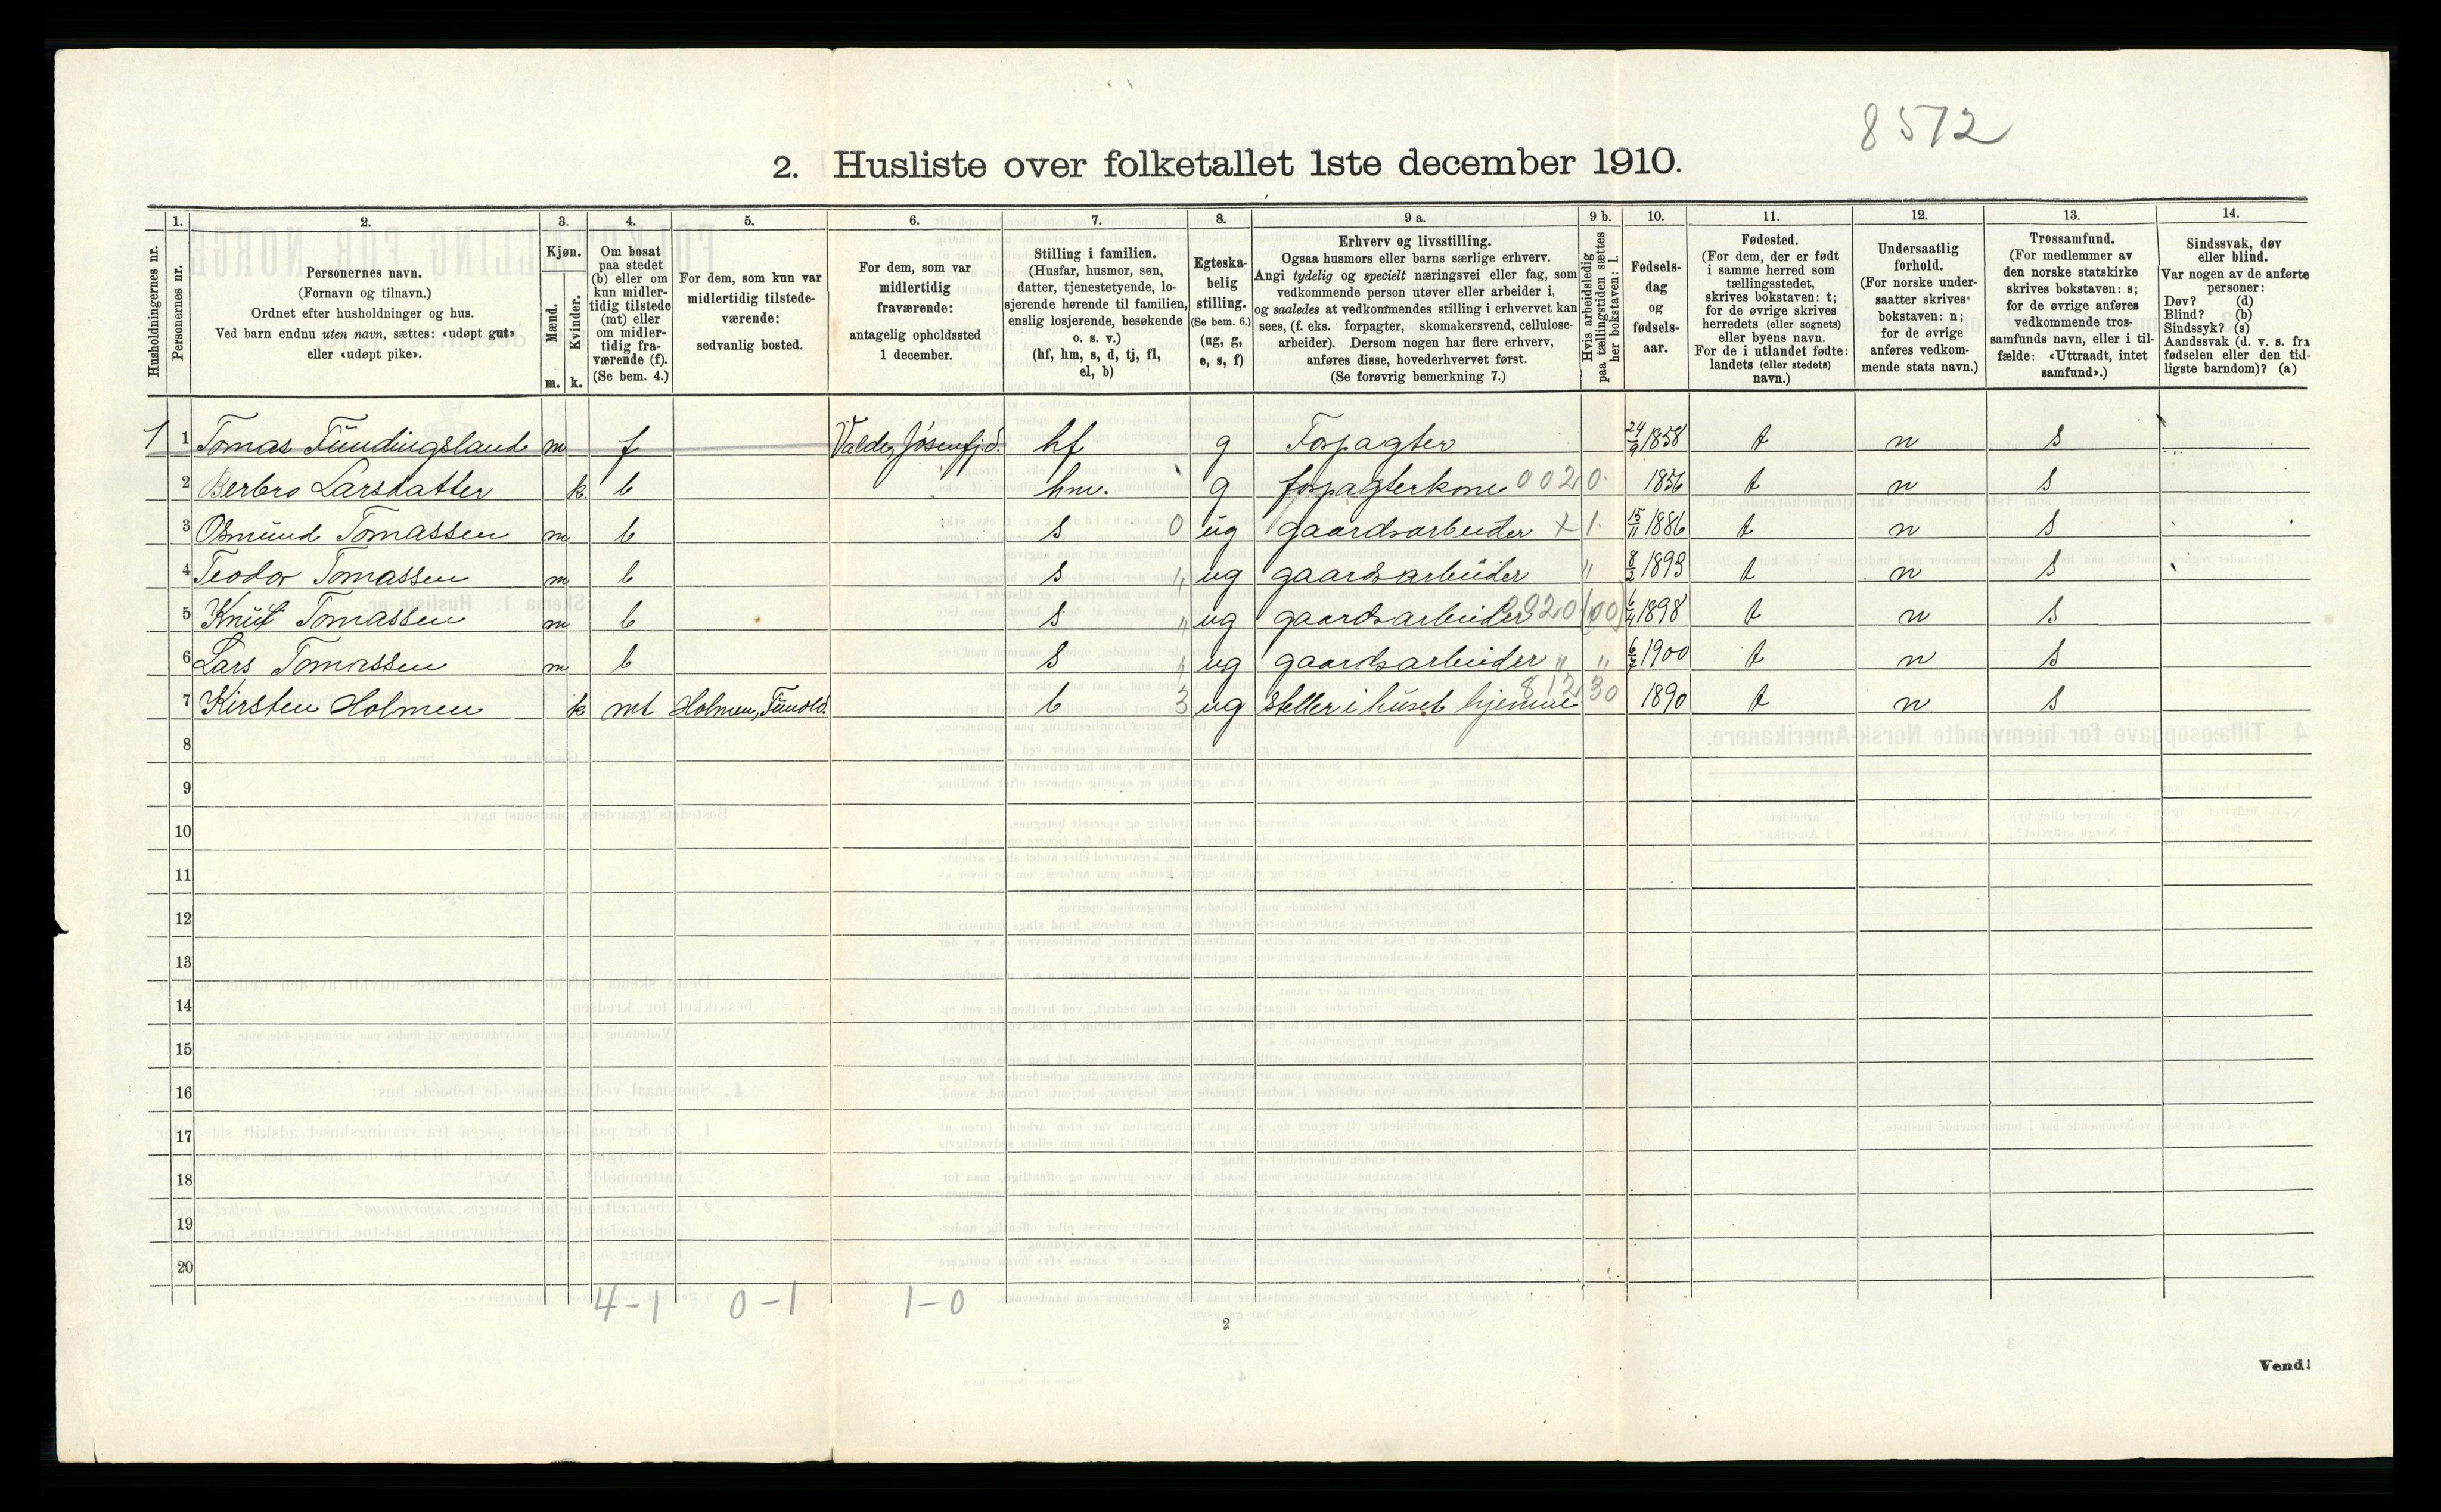 8572
2. Husliste over folketallet 1ste december 1910.
Husholdningernes nr.
1.
Personernes nr.
2.
Personernes navn.
(Fornavn og tilnavn.)
Ordnet efter husholdninger og hus.
Ved barn endnu uten navn, sættes: «udøpt gut»
eller «udøpt pike».
3.
Kjøn.
Mænd.
Kvinder.
m. k.
4.
Om bosat
paa stedet
(b) eller om
kun midler-
tidig tilstede
(mt) eller
om midler-
tidig fra-
værende (f).
(Se bem. 4.)
5.
For dem, som kun var
midlertidig tilstede-
værende:
sedvanlig bosted.
6.
For dem, som var
midlertidig
fraværende:
antagelig opholdssted
1 december.
7.
Stilling i familien.
(Husfar, husmor, søn,
datter, tjenestetyende, lo-
sjerende hørende til familien,
enslig losjerende, besøkende
o. s. v.)
(hf, hm, s, d, tj, fl,
el, b)
8.
Egteska-
belig
stilling.
(Se bem. 6.)
(ug, g,
e, s, f)
9 a.
Erhverv og livsstilling.
Ogsaa husmors eller barns særlige erhverv.
Angi tydelig og specielt næringsvei eller fag, som
vedkommende person utøver eller arbeider i,
og saaledes at vedkommendes stilling i erhvervet kan
sees, (f. eks. forpagter, skomakersvend, cellulose-
arbeider). Dersom nogen har flere erhverv,
anføres disse, hovederhvervet først.
(Se forøvrig bemerkning 7.)
9 b.
Hvis arbeidsledig
paa tællingstiden sættes
her bokstaven: l.
10.
Fødsels-
dag
og
fødsels-
aar.
11.
Fødested.
(For dem, der er født
i samme herred som
tællingsstedet,
skrives bokstaven: t;
for de øvrige skrives
herredets (eller sognets)
eller byens navn.
For de i utlandet fødte:
landets (eller stedets)
navn.)
12.
Undersaatlig
forhold.
(For norske under-
saatter skrives
bokstaven: n;
for de øvrige
anføres vedkom-
mende stats navn.)
13.
Trossamfund.
(For medlemmer av
den norske statskirke
skrives bokstaven: s;
for de øvrige anføres
vedkommende tros-
samfunds navn, eller i til-
fælde: «Uttraadt, intet
samfund».)
14.
Sindssvak, døv
eller blind.
Var nogen av de anførte
personer:
Døv? (d)
Blind? (b)
Sindssyk? (s)
Aandssvak (d. v. s. fra
fødselen eller den tid-
ligste barndom)? (a)
1 1 Tomas Fundingsland m f Valde, Jøsenfj.d. hf g Forpagter 24/9 1858 t n s
2 Berbro Larsdatter k. b hm. g forpagterkone 0020 1856 t n s
3 Osmund Tomassen m b s 0 ug gaardsarbeider x 1. 15/11 1886 t n s
4 Teodor Tomassen m b s " ug gaardsarbeider " 8/2 1893 t n s
5 Knut Tomassen m b s " ug gaardsarbeider 0020 (00) 6/4 1898 t n s
6 Lars Tomassen m b s " ug gaardsarbeider " " 1900 t n s
7 Kirsten Holmen k mt Holmen, b 3 ug steller i huset hjemme 812 30 1890 t n s
8
9
10
11
12
13
14
15
16
17
18
19
20
4-1 0-1 1-0
2
Vend!